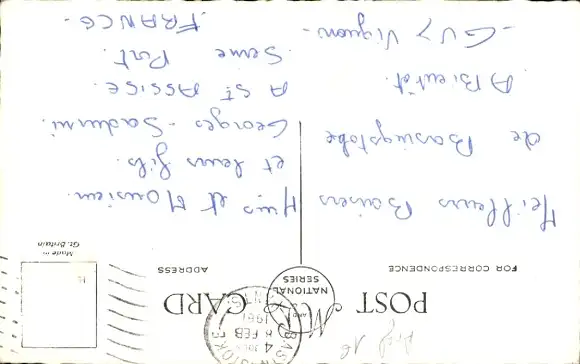 POST CARD
FOR CORRESPONDENCE
ADDRESS
NATIONAL
SERIES
Made in
Gt. Britain
BASINGSTOKE
4
8 FEB
1961
Meilleurs Baisers
de Basingstoke
A Bientôt.
- GUY Vignon -
et Monsieur.
et leurs fils.
Georges - Sadurni
A ST ASSISE.
Seine Port.
FRANCE -